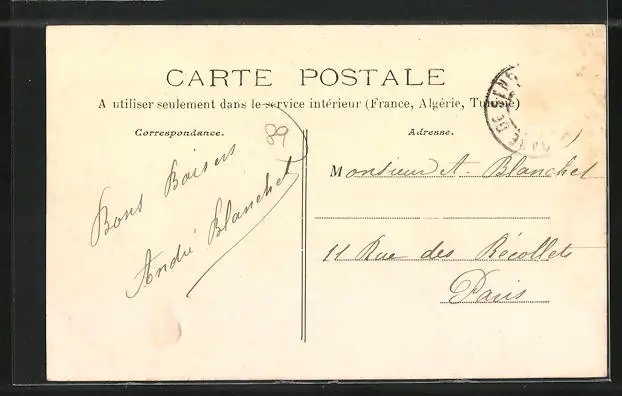 CARTE POSTALE
A utiliser seulement dans le service intérieur (France, Algérie, Tunisie)
Correspondance.
89
Bons Baisers
André Blanchet
Adresse.
Monsieur A. Blanchet
11 Rue des Récollets
Paris